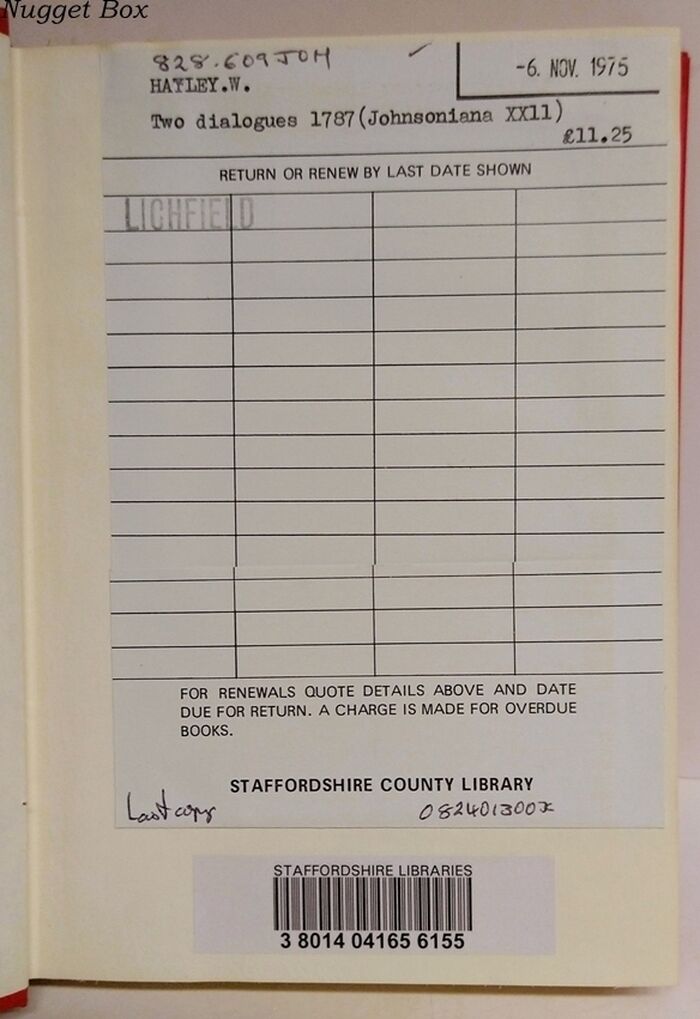 Nugget Box
828.609 JOH
-6. NOV. 1975
HAYLEY.W.
Two dialogues 1787(Johnsoniana XX11)
£11.25
RETURN OR RENEW BY LAST DATE SHOWN
LICHFIELD
FOR RENEWALS QUOTE DETAILS ABOVE AND DATE
DUE FOR RETURN. A CHARGE IS MADE FOR OVERDUE
BOOKS.
STAFFORDSHIRE COUNTY LIBRARY
Last copy
082401300X
STAFFORDSHIRE LIBRARIES
3 8014 04165 6155